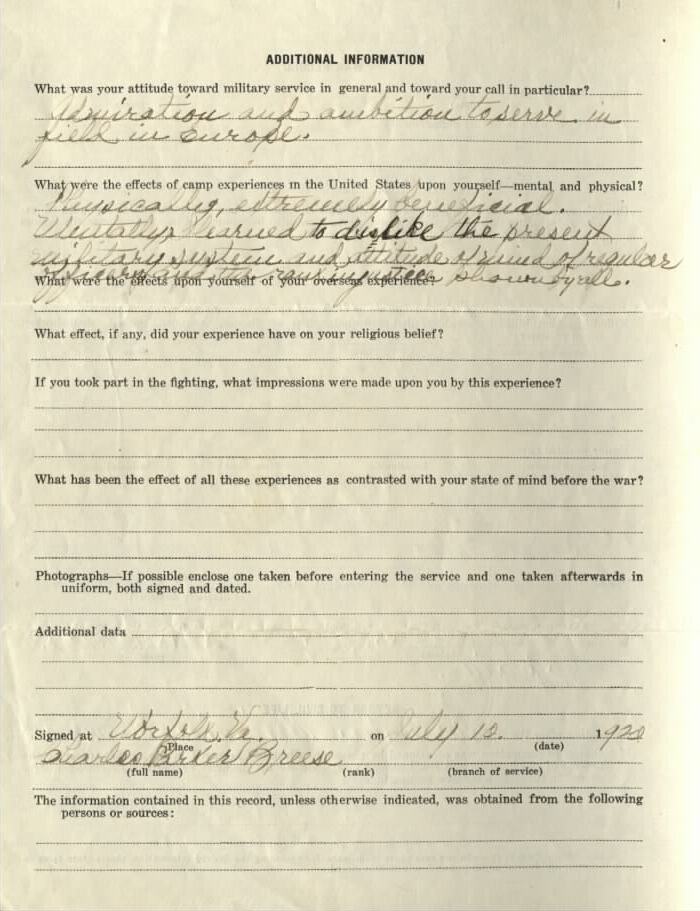 ADDITIONAL INFORMATION
What was your attitude toward military service in general and toward your call in particular?
Admiration and ambition to serve in
field in Europe.
What were the effects of camp experiences in the United States upon yourself—mental and physical?
Physically, extremely beneficial.
Mentally, learned to dislike the present
military system and attitude of mind of regular
officers and the injustice shown by all.
What were the effects upon yourself of your overseas experience?
What effect, if any, did your experience have on your religious belief?
If you took part in the fighting, what impressions were made upon you by this experience?
What has been the effect of all these experiences as contrasted with your state of mind before the war?
Photographs—If possible enclose one taken before entering the service and one taken afterwards in
uniform, both signed and dated.
Additional data
Signed at Norfolk, Va. on July 12. 1920
(Place (date)
Charles Parker Breese
(full name) (rank) (branch of service)
The information contained in this record, unless otherwise indicated, was obtained from the following
persons or sources: